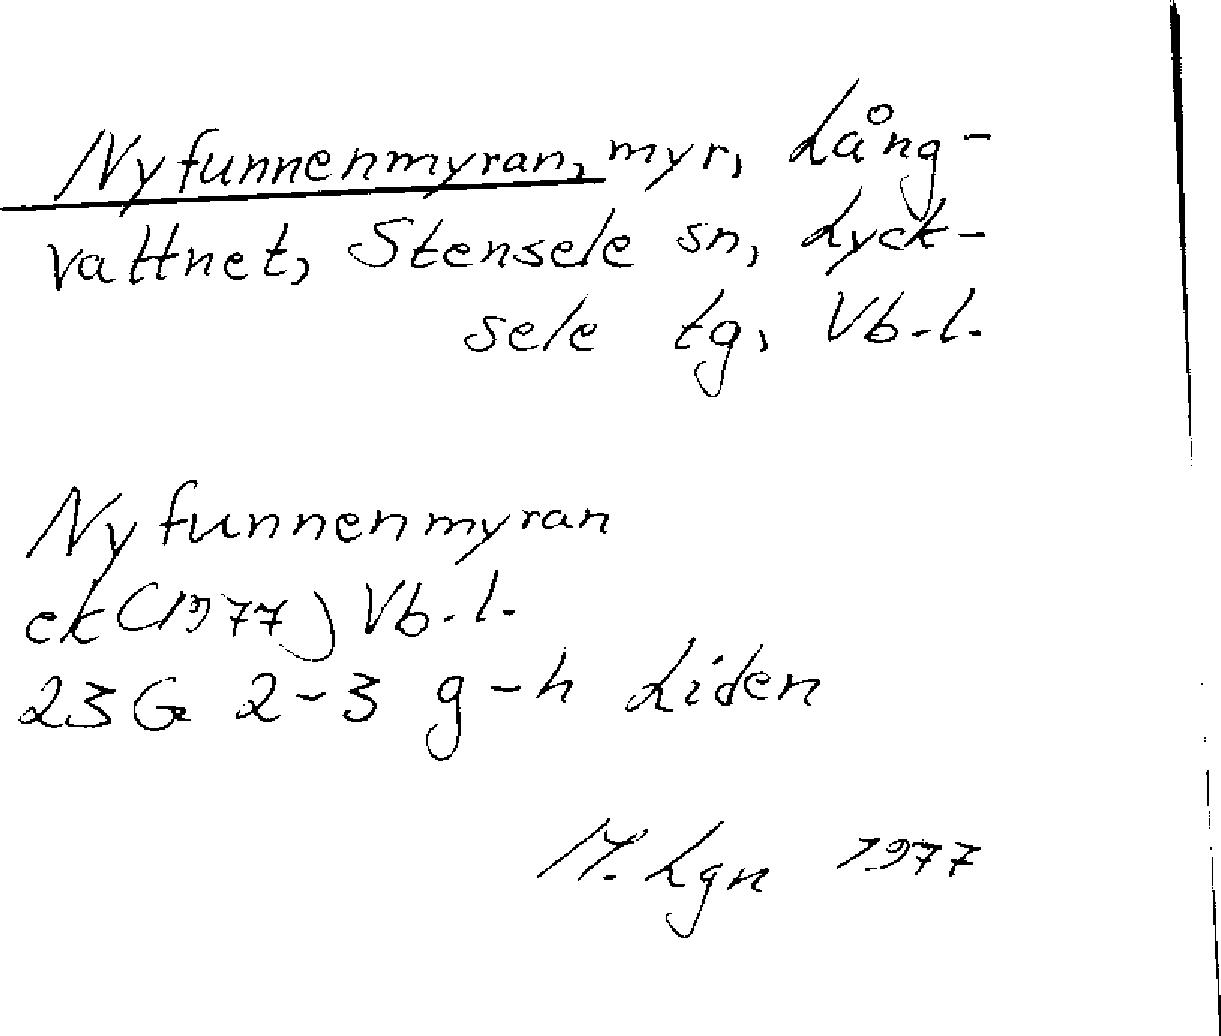 Nyfunnenmyran, myr, Lång-
vattnet, Stensele sn, Lyck-
sele tg, Vb.l.
Nyfunnenmyran
ek (1977) Vb.l.
23 G 2-3 g-h Liden
M. Lgn 1977